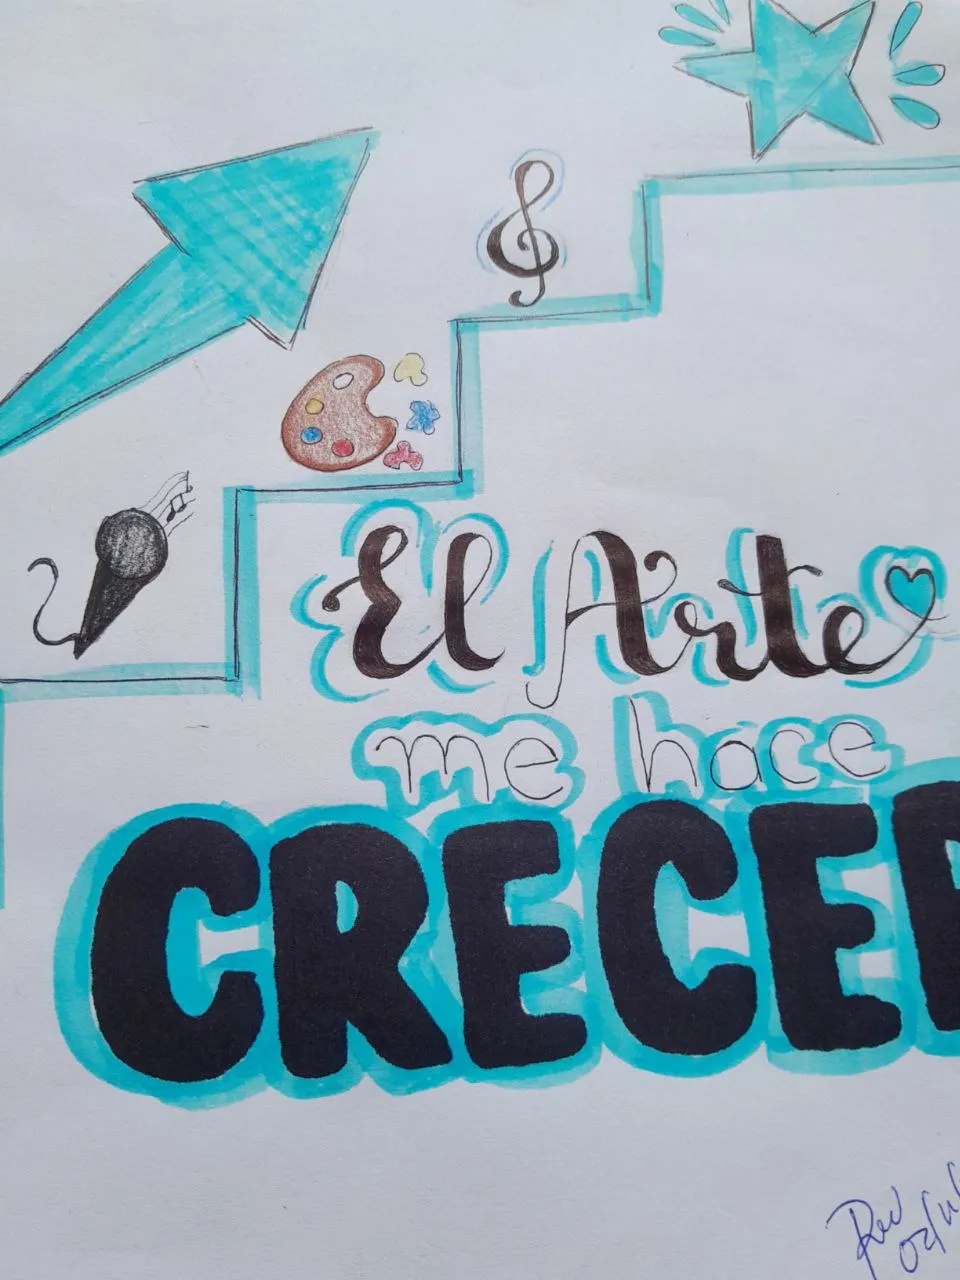 El Arte
me hace
CRECER
Rev